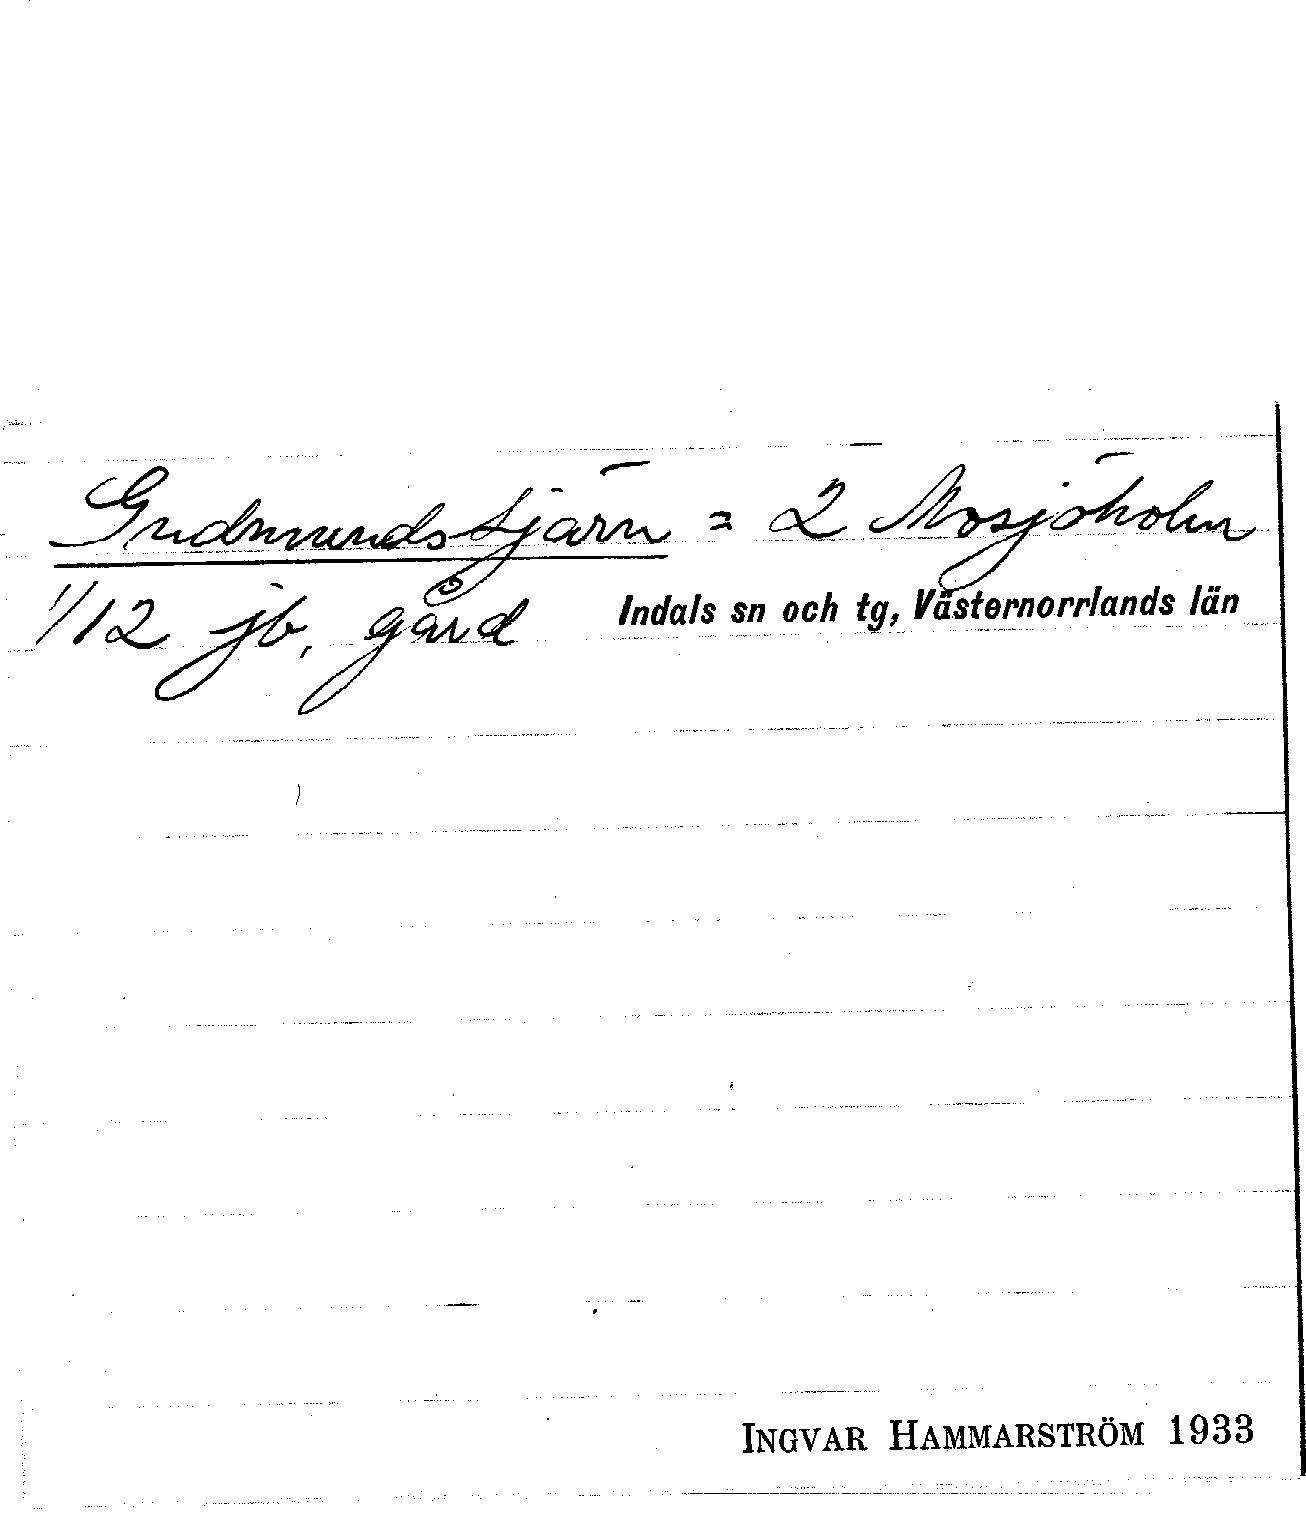 Gudmundstjärn = 2 Mosjöholm
1/12 jb, gård Indals sn och tg, Västernorrlands län
INGVAR HAMMARSTRÖM 1933